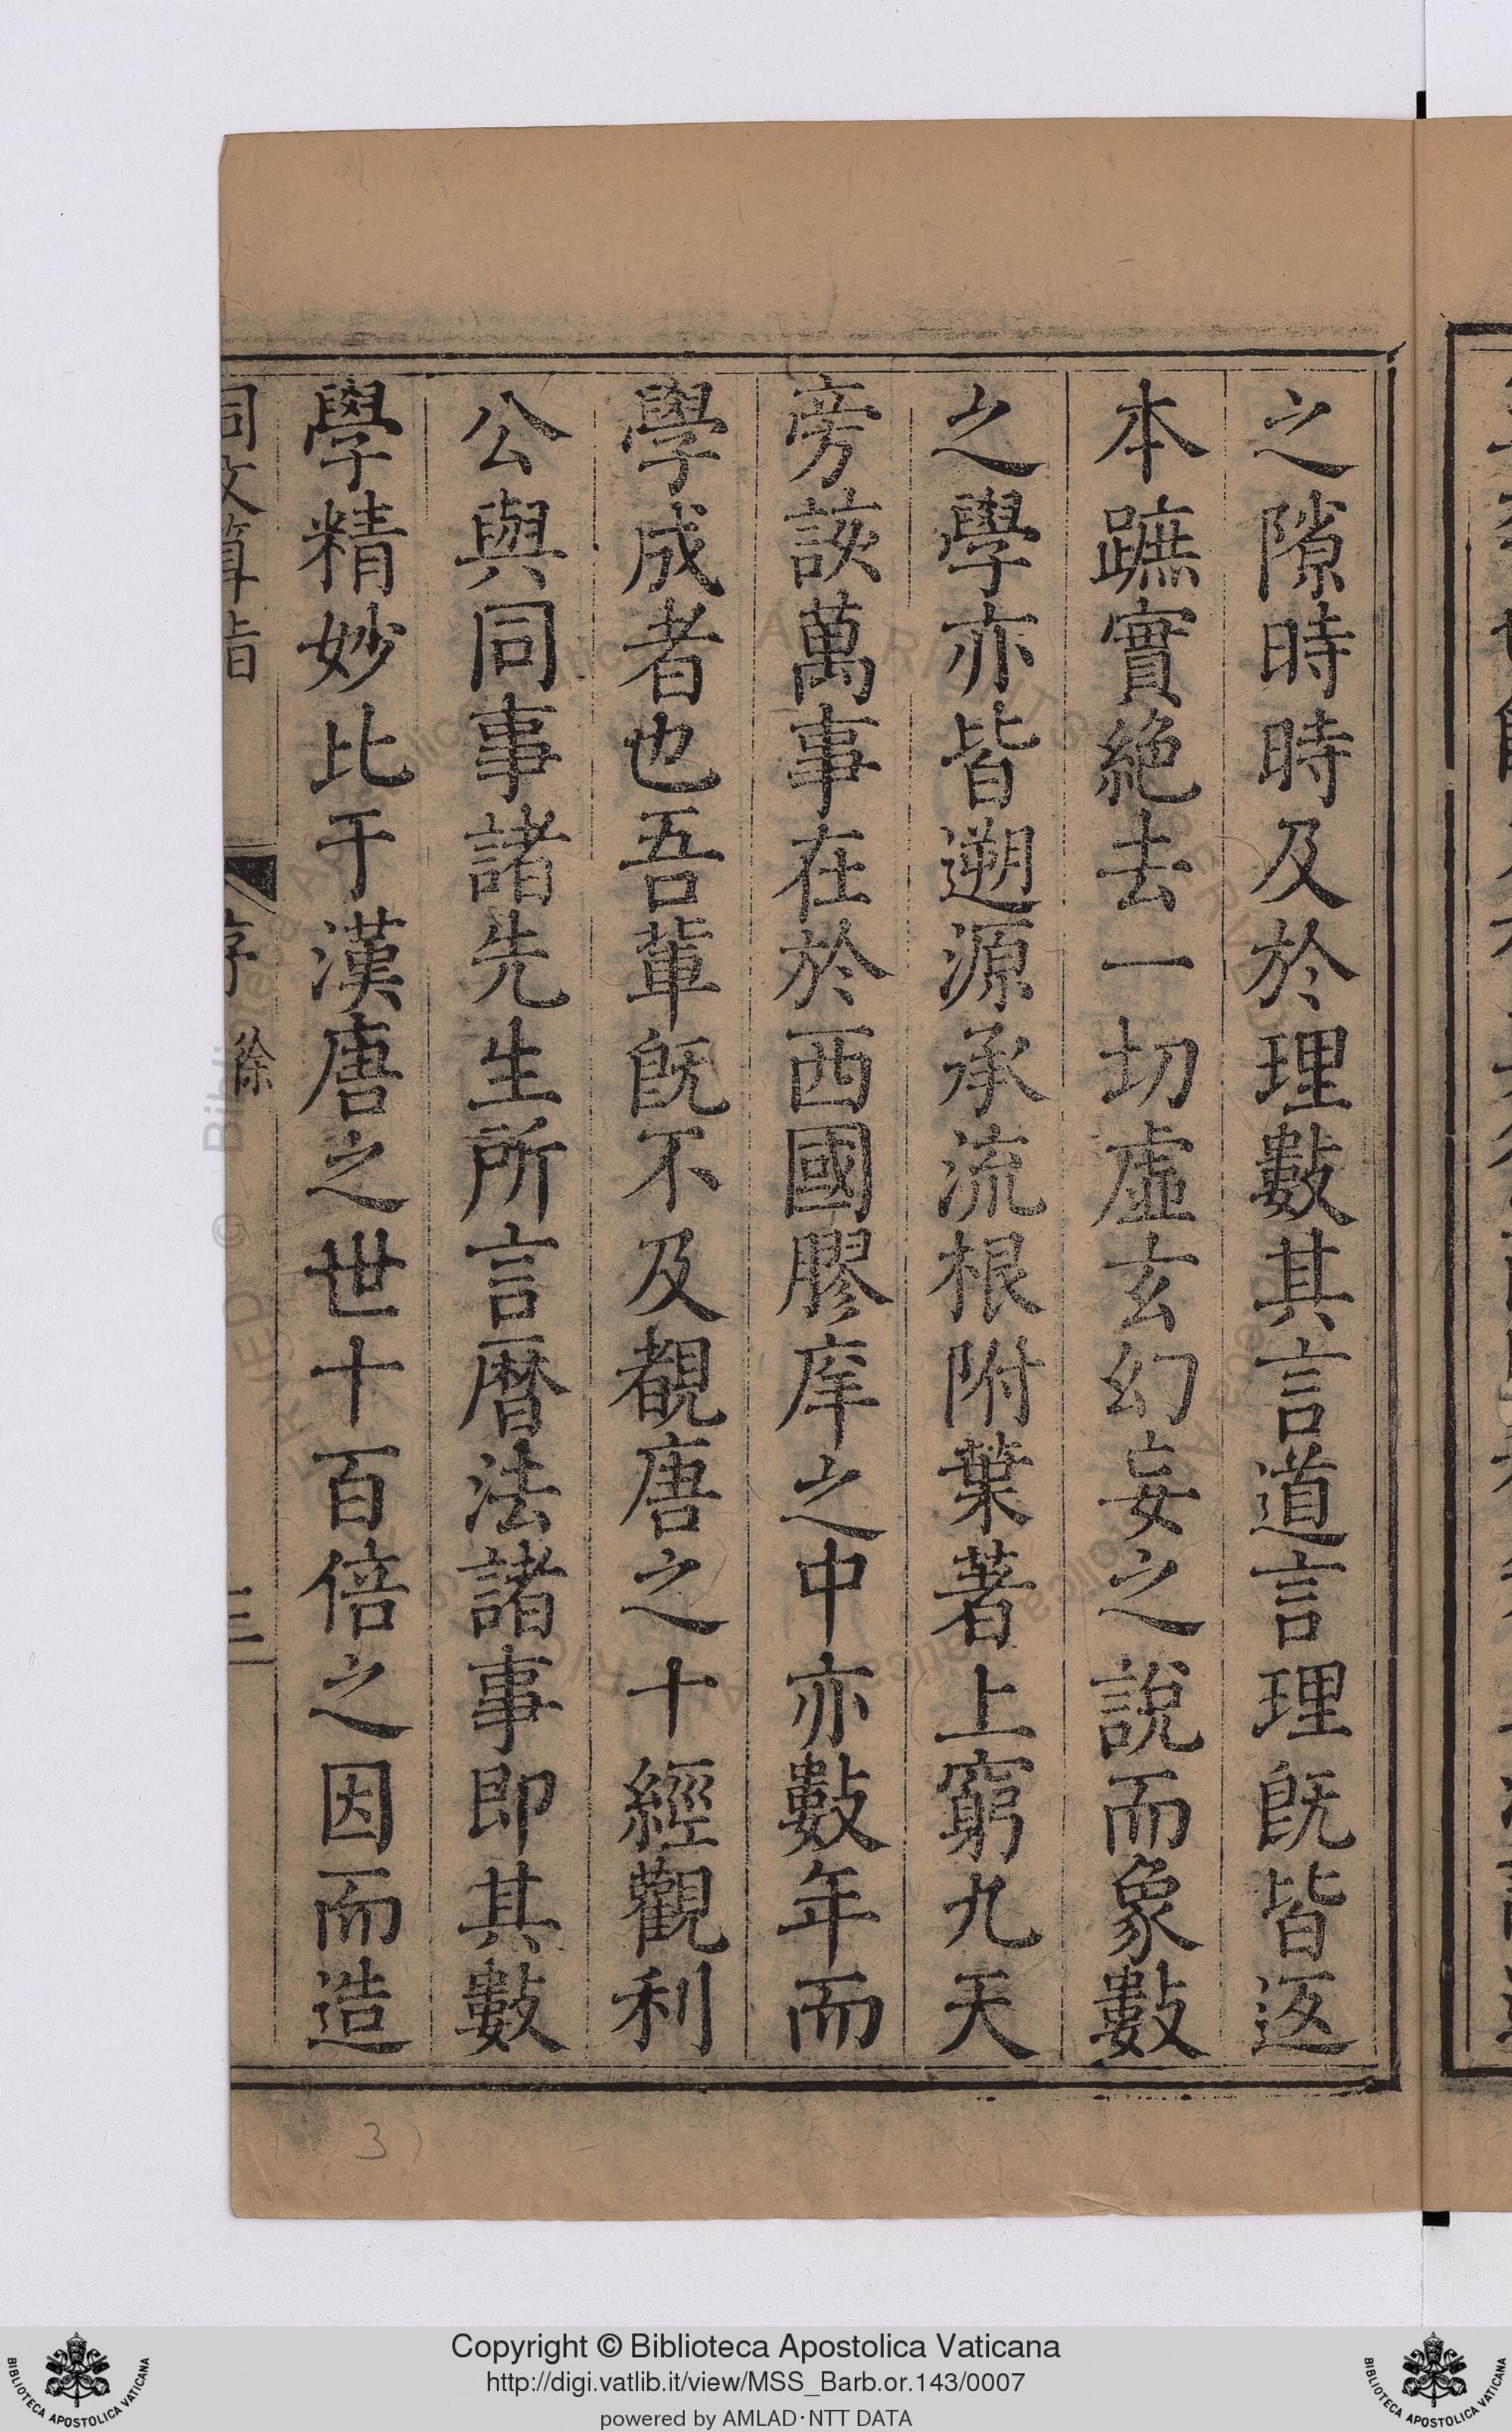 之隙時時及於理數其言道言理旣皆返
本蹠實絶去一切虛玄幻妄之說而象數
之學亦皆遡源承流根附葉著上窮九天
旁該萬事在於西國膠庠之中亦數年而
學成者也吾輩旣不及覩唐之十經觀利
公與同事諸先生所言曆法諸事即其數
學精妙比于漢唐之世十百倍之因而造
同文算指 序 徐 三
3
Copyright © Biblioteca Apostolica Vaticana
http://digi.vatlib.it/view/MSS_Barb.or.143/0007
powered by AMLAD·NTT DATA
BIBLIOTECA APOSTOLICA VATICANA
BIBLIOTECA APOSTOLICA VATICANA